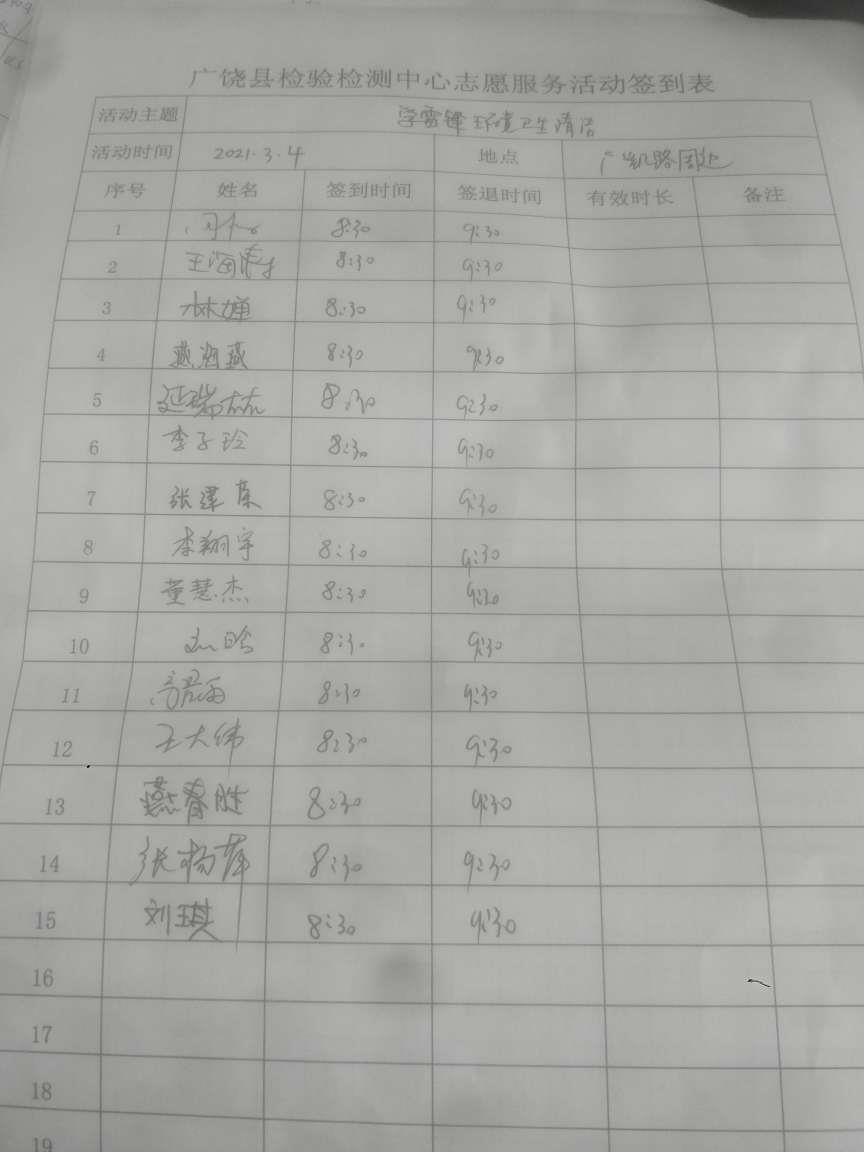 广饶县检验检测中心志愿服务活动签到表
活动主题 学雷锋环境卫生清洁
活动时间 2021.3.4 地点 广凯路周边
序号 姓名 签到时间 签退时间 有效时长 备注
1 8:30 9:30
2 王海涛 8:30 9:30
3 林婵 8:30 9:30
4 燕海燕 8:30 9:30
5 延瑞林 8:30 9:30
6 李子玲 8:30 9:30
7 张建 8:30 9:30
8 李翔宇 8:30 9:30
9 董慧杰 8:30 9:30
10 8:30 9:30
11 8:30 9:30
12 王大伟 8:30 9:30
13 燕春胜 8:30 9:30
14 张杨萍 8:30 9:30
15 刘琪 8:30 9:30
16
17
18
19